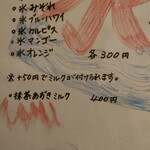 ・氷みぞれ
・氷ブルーハワイ
・氷カルピス
・氷マンゴー
・氷オレンジ 各300円
※+50円でミルクが付けられます。
・抹茶あずきミルク 400円